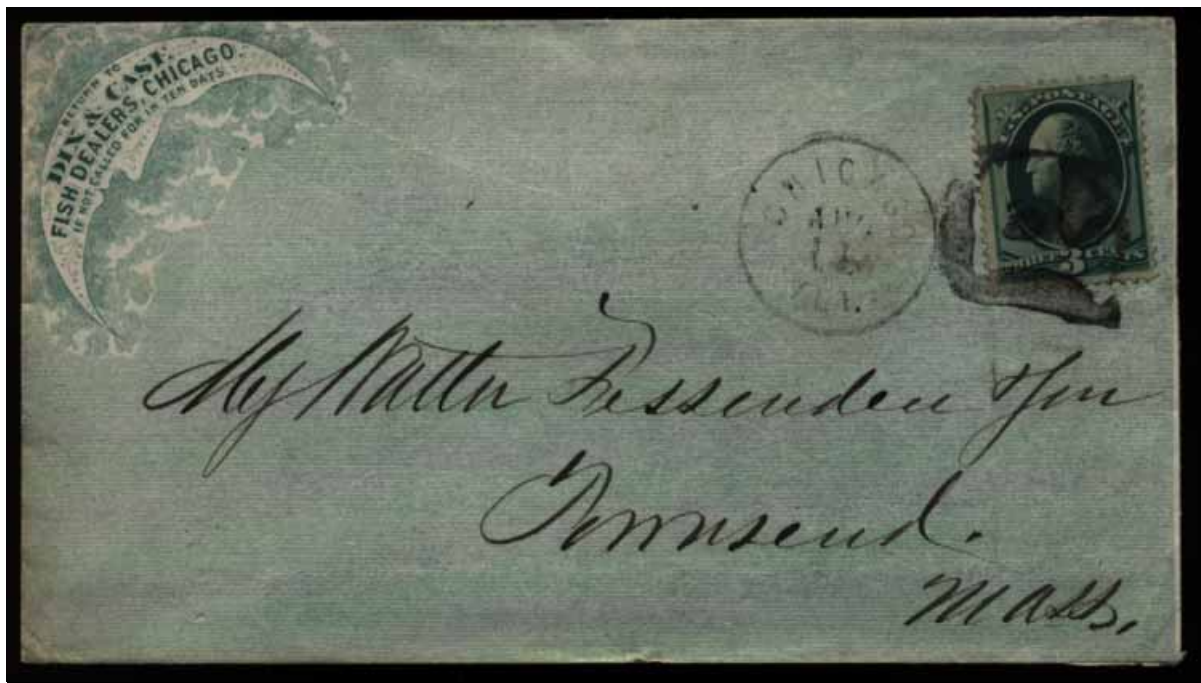 RETURN TO
DIX & CASE.
FISH DEALERS, CHICAGO.
IF NOT CALLED FOR IN TEN DAYS
U.S. POSTAGE
THREE 3 CENTS
CHICAGO
ILL.
Walter Fessenden & Son
Townsend.
Mass.